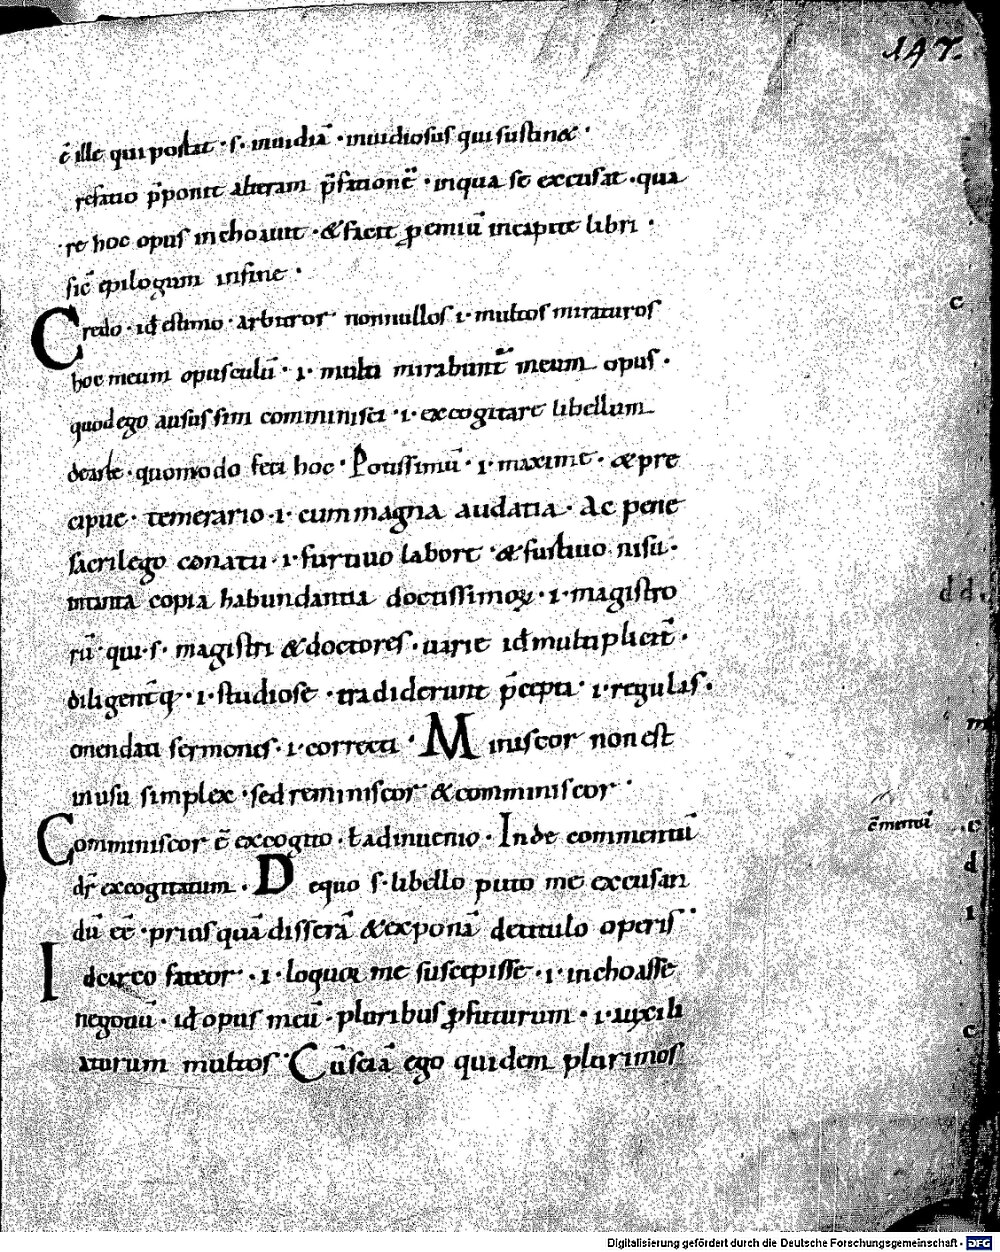 147.
ē ille qui portat · s· inuidiā · inuidiosus qui sustinet ·
re hoc opus inchoauit · & facit ꝓemiū in capite libri ·
sic̄ epilogum in fine ·
Credo · id estimo · arbitror nonnullos ·i· multos miraturos
hoc meum opusculū · ·i· multi mirabunt̄ meum opus ·
quod ego ausus sim comminisci ·i· excogitare libellum
de arte · quomodo feci hoc · Potissimū ·i· maxime · & pre
cipue · temerario ·i· cum magna audatia · Ac pene
sacrilego conatu ·i· furtiuo labore · & furtiuo nisu ·
copia habundantia doctissimoꝝ ·i· magistro
rū · qui · s· magistri & doctores · uarie id multiplicit̄ ·
diligent̄q; ·i· studiose · tradiderunt p̄cepta ·i· regulas ·
emendati sermonis ·i· correcti · Miniscor non est
in usu simplex · sed reminiscor & comminiscor ·
Comminiscor ē excogito · ł adinuenio · Inde commentū
dr̄ excogitatum · De quo s· libello puto me excusan
dū eē · prius quā disserā & exponā de titulo operis
Idcirco fateor ·i· loquor me suscepisse ·i· inchoasse
negotiū · id opus meū · pluribus ꝓfuturum ·i· auxili
aturum multos · Cū sciā ego quidem plurimos
c
dd.
m
ēmentū
c
d
i
c
Digitalisierung gefördert durch die Deutsche Forschungsgemeinschaft - DFG